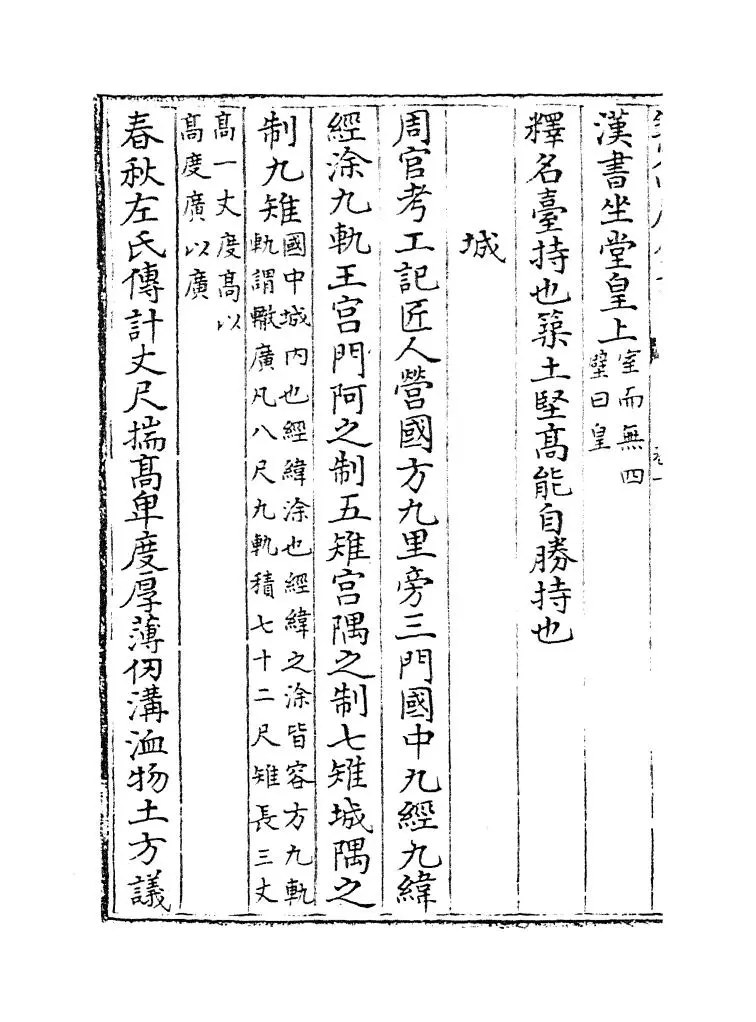 漢書坐堂皇上室而無四壁曰皇
釋名臺持也築土堅髙能自勝持也
城
周官考工記匠人營國方九里旁三門國中九經九緯
經涂九軌王宫門阿之制五雉宫隅之制七雉城隅之
制九雉國中城内也經緯涂也經緯之涂皆容方九軌軌謂轍廣凡八尺九軌積七十二尺雉長三丈
髙一丈度髙以髙度廣以廣
春秋左氏傳計丈尺揣髙卑度厚薄仞溝洫物土方議